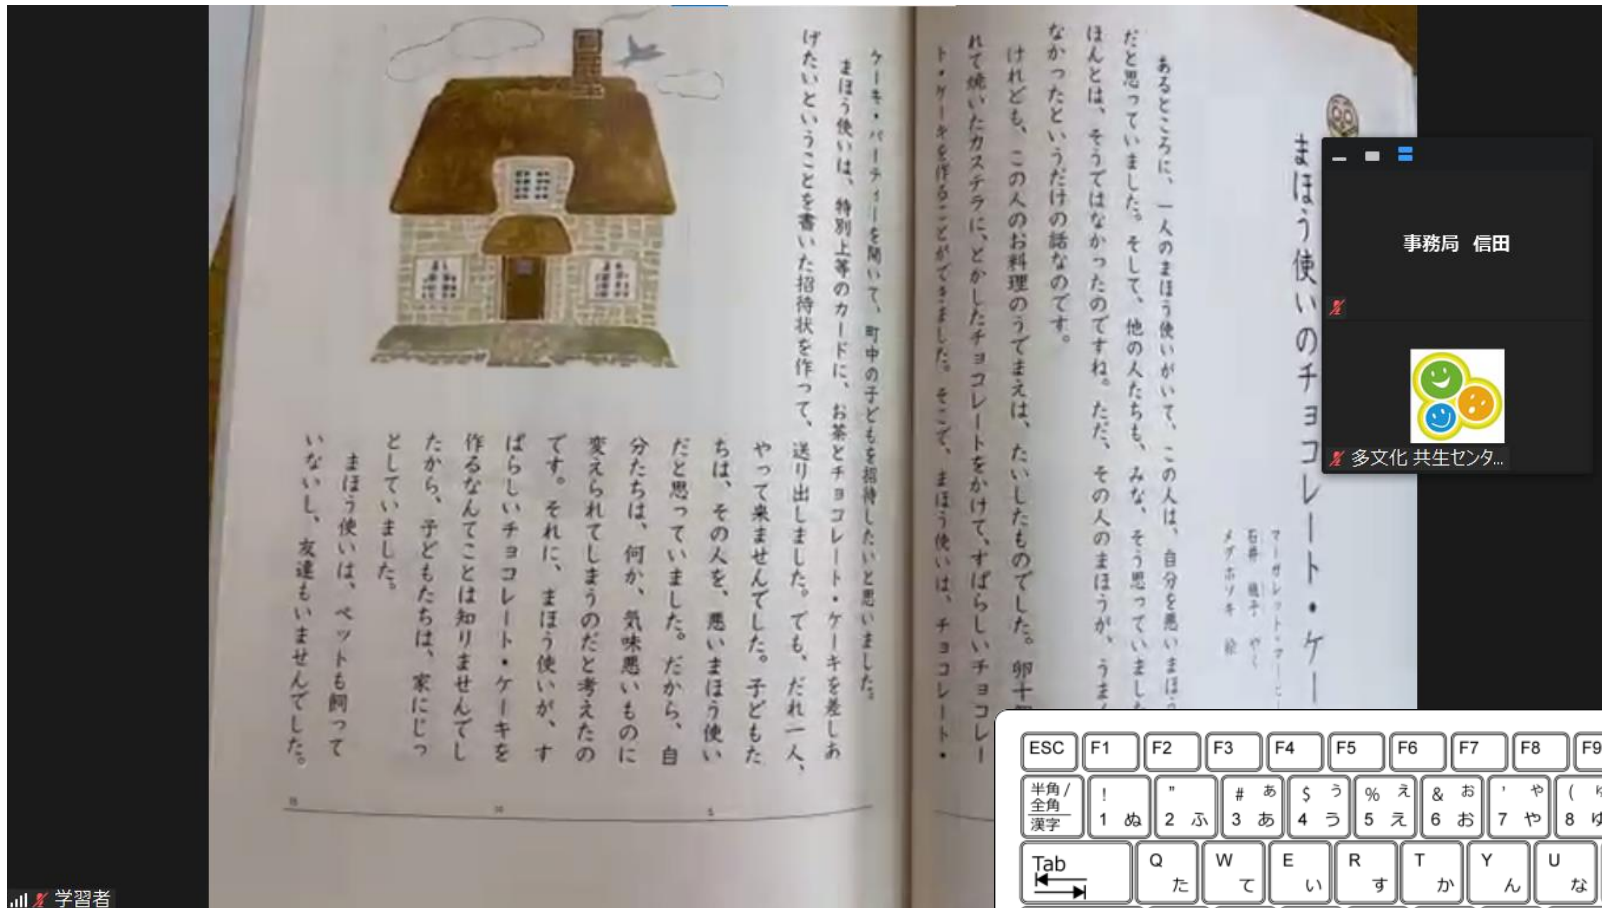 まほう使いのチョコレート・ケー
マーガレット・マーヒー
石井 桃子 やく
メグホソキ 絵
あるところに、一人のまほう使いがいて、この人は、自分を悪いまほう
だと思っていました。そして、他の人たちも、みな、そう思っていました
ほんとは、そうではなかったのですね。ただ、その人のまほうが、うまく
なかったというだけの話なのです。
けれども、この人のお料理のうでまえは、たいしたものでした。卵十
れて焼いたカステラに、とかしたチョコレートをかけて、すばらしいチョコレー
ト・ケーキを作ることができました。そこで、まほう使いは、チョコレート・
ケーキ・パーティーを開いて、町中の子どもを招待したいと思いました。
まほう使いは、特別上等のカードに、お茶とチョコレート・ケーキを差しあ
げたいということを書いた招待状を作って、送り出しました。でも、だれ一人、
やって来ませんでした。子どもた
ちは、その人を、悪いまほう使い
だと思っていました。だから、自
分たちは、何か、気味悪いものに
変えられてしまうのだと考えたの
です。それに、まほう使いが、す
ばらしいチョコレート・ケーキを
作るなんてことは知りませんでし
たから、子どもたちは、家にじっ
としていました。
まほう使いは、ペットも飼って
いないし、友達もいませんでした。
5
10
15
事務局 信田
多文化 共生センタ...
学習者
ESC F1 F2 F3 F4 F5 F6 F7 F8 F9
半角/全角 漢字 ! 1 ぬ " 2 ふ # あ 3 あ $ ぅ 4 う % ぇ 5 え & ぉ 6 お ' ゃ 7 や ( 8 ゆ
Tab Q た W て E ぃ い R す T か Y ん U な